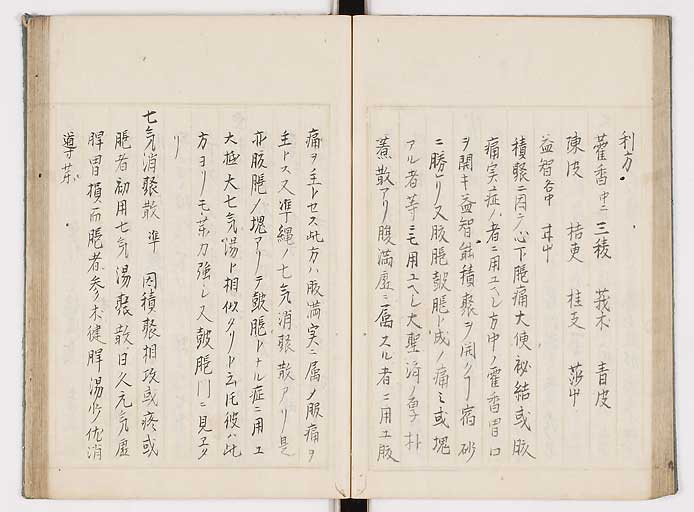 利方
藿香中二 三稜 莪朮 青皮
陳皮 桔更 桂支 莎中
益智各中 耳中
積聚ニ因テ心下脹痛大便祕結或腹
痛実症ノ者ニ用ユヘシ方中ノ藿香胃口
ヲ開キ益智能積聚ヲ開ク宿砂
ニ勝レリ又腹脹皷脹ト成ノ痛ミ或塊
アル者等ニモ用ユヘシ大聖済ノ厚朴
煮散アリ腹満虚ニ属スル者ニ用ユ腹
痛ヲ主トセス此方ハ腹満実ニ属ノ腹痛ヲ
主トス又準縄ノ七気消聚散アリ是
亦腹脹ノ塊アリテ皷脹トナル症ニ用ユ
大極大七気湯ト相似タリト云氏彼ハ此
方ヨリモ薬力強シ又皷脹門ニ見ヱタ
リ
七気消聚散 準 因積聚相攻或疼或
脹者初用七気湯聚散日久元気虚
脾胃損而脹者参朮健脾湯少佐消
導薬